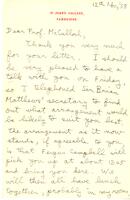 ST JOHN'S COLLEGE,
CAMBRIDGE
12th Nov, '58
Dear Prof. McCulloch,
Thank you very much
for your letter. I should
be very pleased to have a
talk with you on Friday,
so I telephoned Sir Brian
Matthews' secretary to find
out what arrangement would
be likely to suit you. So
the arrangement as it now
stands, if agreeable to you,
is that Fergus Campbell will
pick you up at about 12.45
and bring you here. We
will then all have lunch
together, probably in my rooms